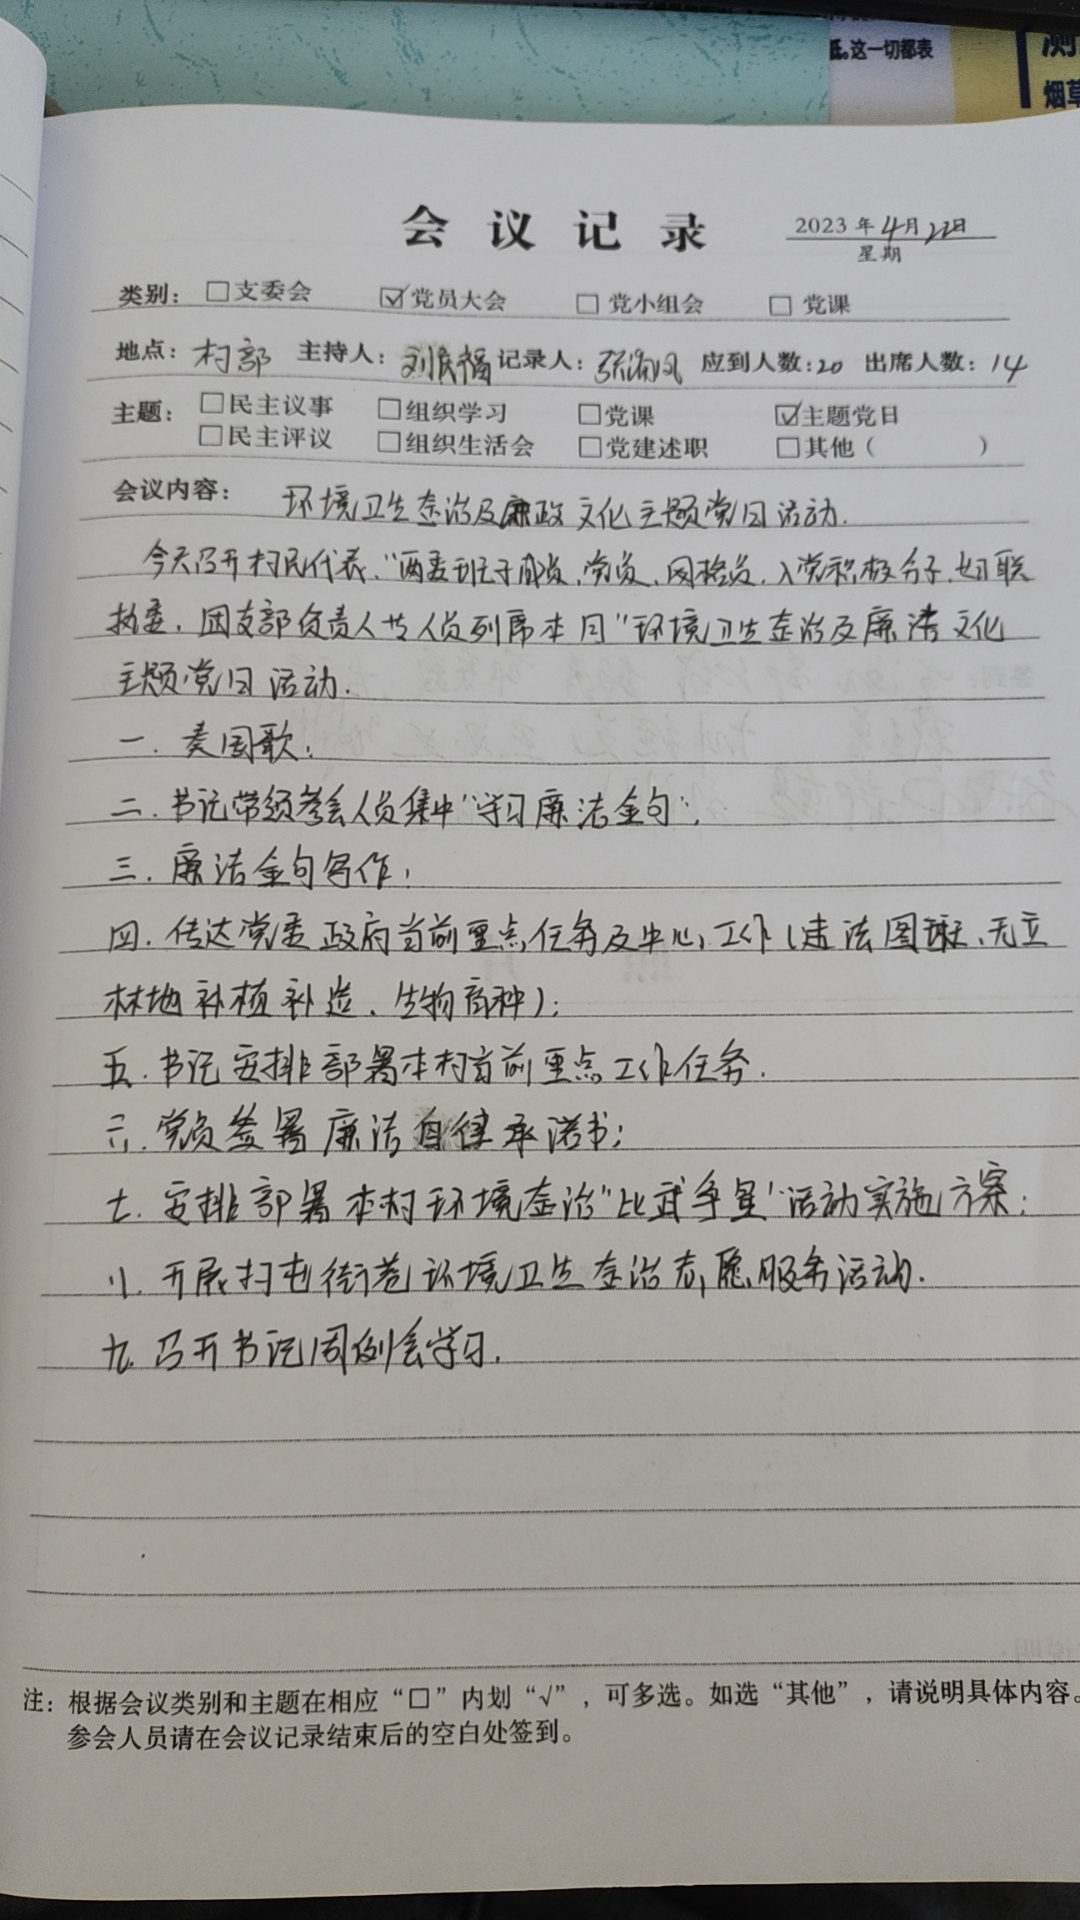 低。这一切都表
测
烟草
会议记录
2023年4月22日
星期
类别：□支委会 ☑党员大会 □党小组会 □党课
地点：村部 主持人：刘庆福 记录人： 应到人数：20 出席人数：14
主题：□民主议事 □组织学习 □党课 ☑主题党日
□民主评议 □组织生活会 □党建述职 □其他（ ）
会议内容：环境卫生整治及廉政文化主题党日活动.
今天召开村民代表、“两委班子成员、党员、网格员、入党积极分子、妇联
执委、团支部负责人等人员列席本月“环境卫生整治及廉洁文化
主题党日活动.
一.奏国歌；
二.书记带领参会人员集中“学习廉洁金句”；
三.廉洁金句写作；
四.传达党委政府当前重点任务及中心工作（违法图斑、无立
林地补植补造、生物商种）；
五.书记安排部署本村当前重点工作任务.
六.党员签署廉洁自律承诺书；
七.安排部署本村环境整治“比武争星”活动实施方案；
八.开展村屯街巷环境卫生整治志愿服务活动.
九.召开书记周例会学习.
注：根据会议类别和主题在相应“□”内划“√”，可多选。如选“其他”，请说明具体内容。
参会人员请在会议记录结束后的空白处签到。